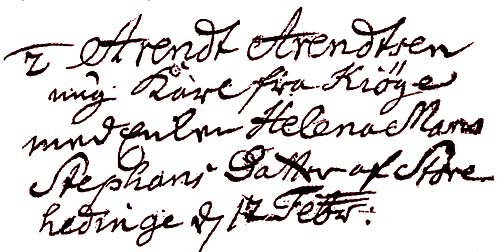 2 Arendt Arendtsen
ung Karl fra Kiöge
med Enken Helena Maria
Stephans Datter af Store
hedinge d 12 Febr: